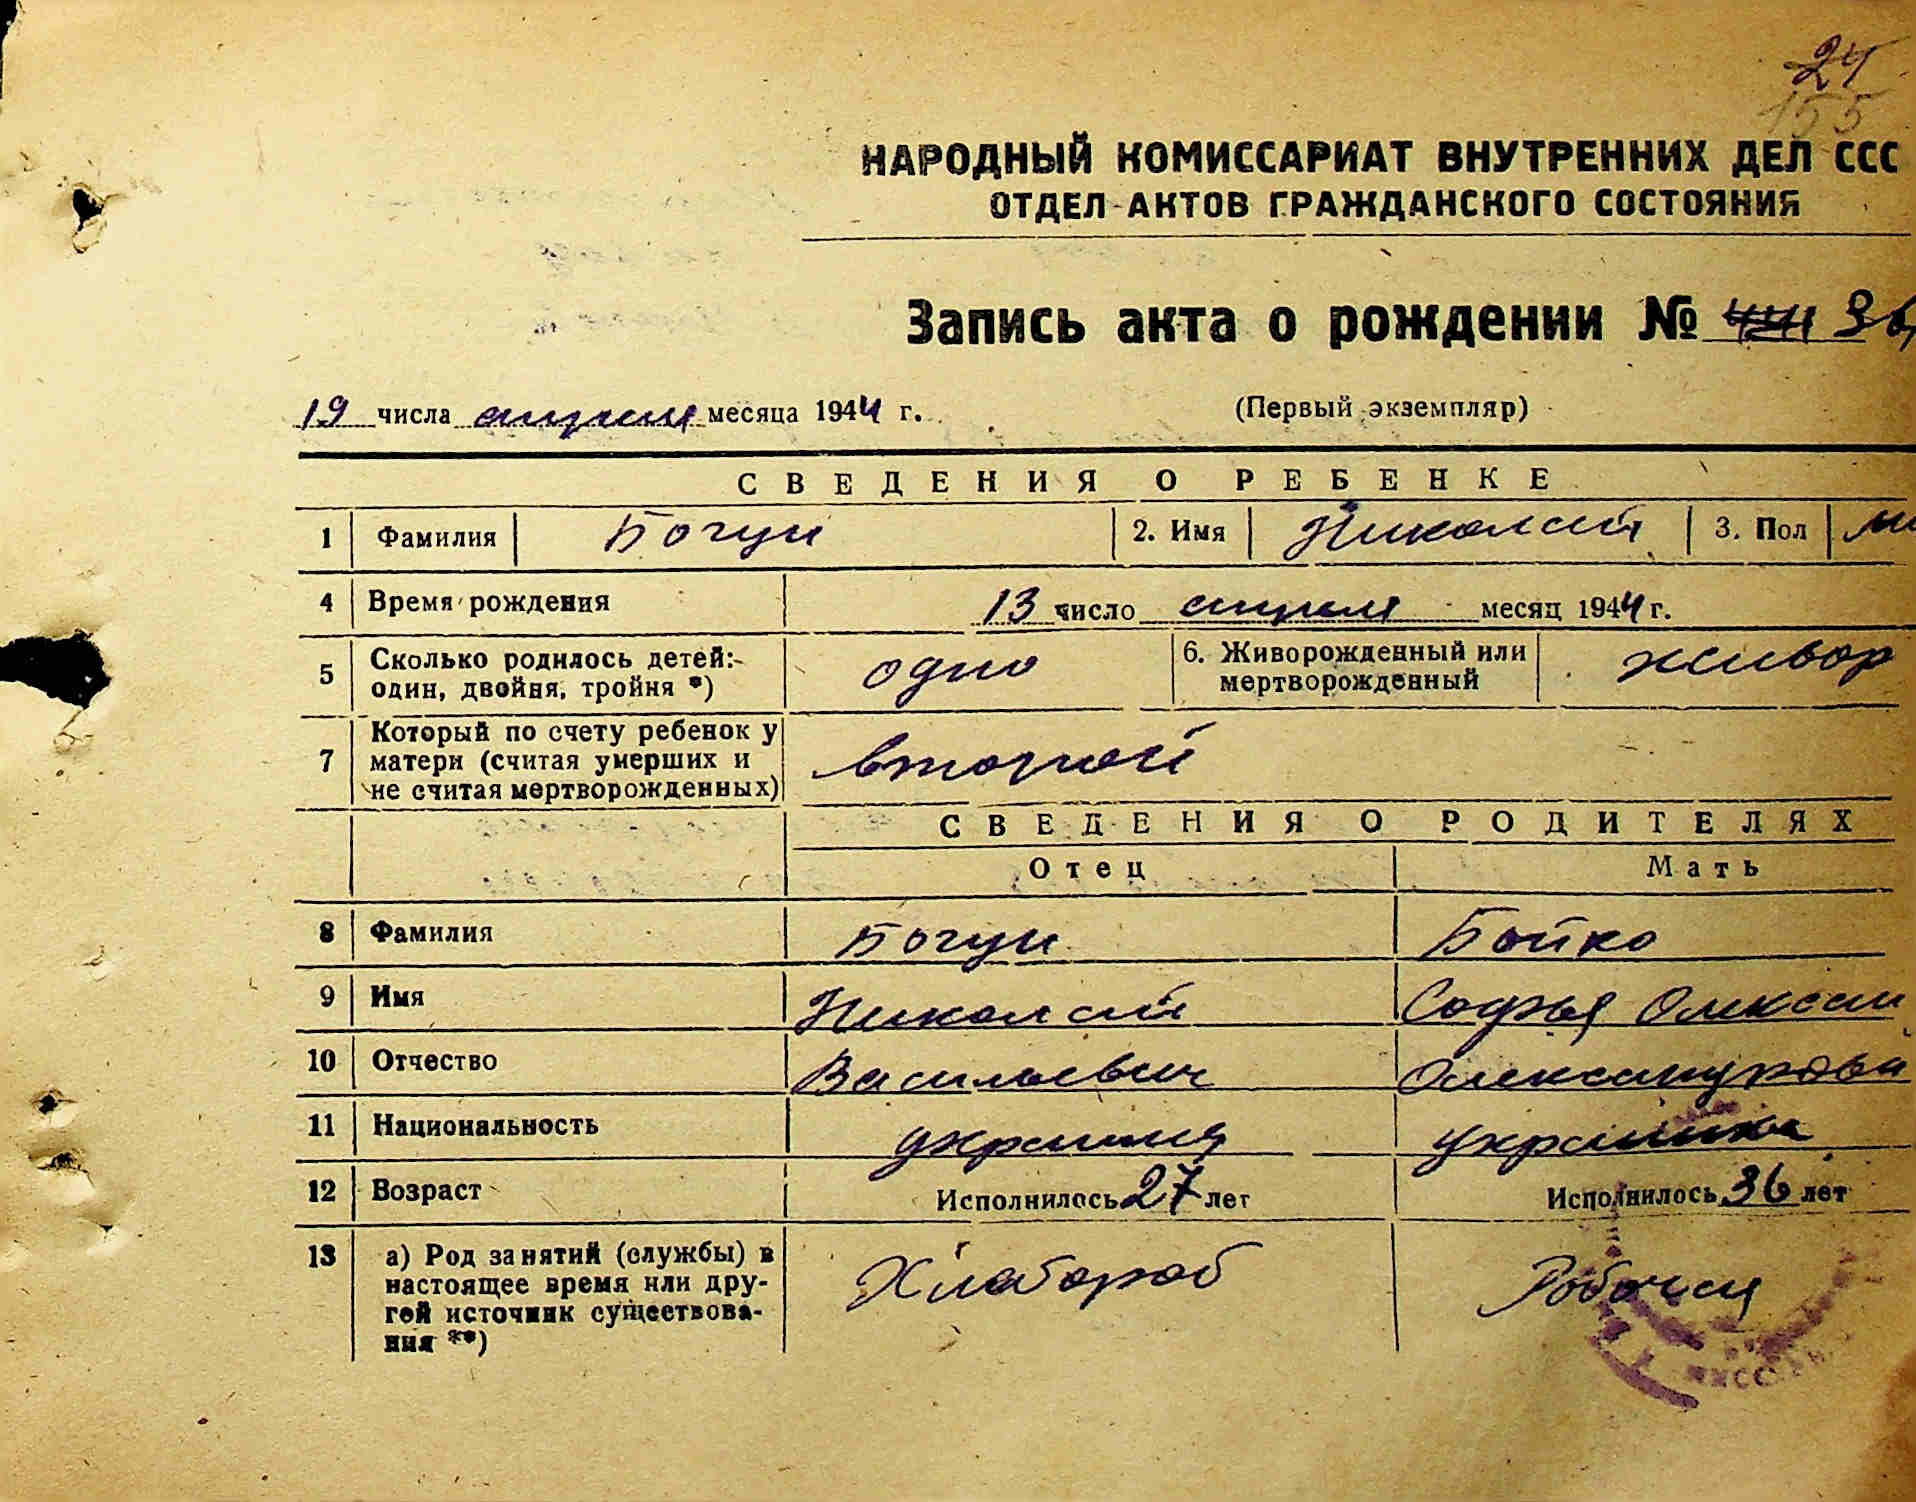 24
155
НАРОДНЫЙ КОМИССАРИАТ ВНУТРЕННИХ ДЕЛ ССС
ОТДЕЛ АКТОВ ГРАЖДАНСКОГО СОСТОЯНИЯ
Запись акта о рождении № 36
19 числа апреля месяца 1944 г. (Первый экземпляр)
СВЕДЕНИЯ О РЕБЕНКЕ
1 Фамилия Богун 2. Имя Николай 3. Пол
4 Время рождения 13 число апреля месяц 1944 г.
5 Сколько родилось детей: один, двойня, тройня *) одно 6. Живорожденный или мертворожденный живор
7 Который по счету ребенок у матери (считая умерших и не считая мертворожденных) второй
СВЕДЕНИЯ О РОДИТЕЛЯХ
Отец Мать
8 Фамилия Богун Бойко
9 Имя Николай Софья
10 Отчество Васильевич Олександрова
11 Национальность украинец украинка
12 Возраст Исполнилось 27 лет Исполнилось 36 лет
13 а) Род занятий (службы) в настоящее время или другой источник существования **) Хлебороб Робочая